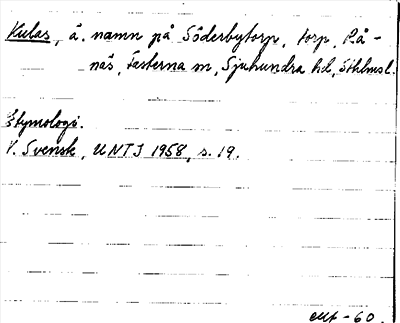 Kulas, ä. namn på Söderbytorp, torp, Rå-
näs, Fasterna sn, Sjuhundra hd, Sthlms l.
Etymologi.
V. Svensk, UNTJ 1958, s. 19.
-60.